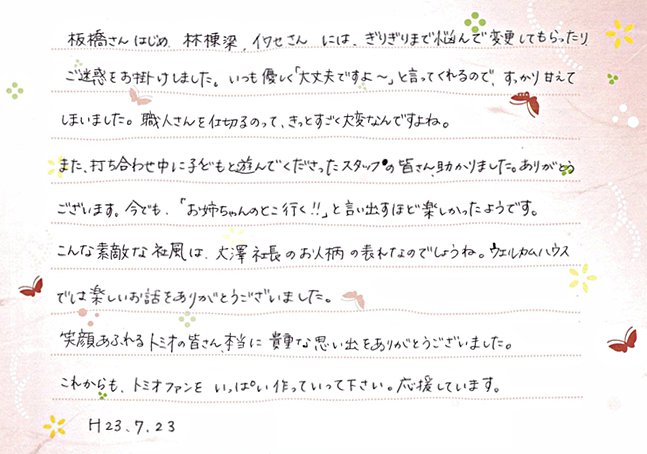 板橋さんはじめ、林棟梁、イワセさん には、ぎりぎりまで悩んで変更してもらったり
ご迷惑をお掛けしました。いつも優しく「大丈夫ですよ～」と言ってくれるので、すっかり甘えて
しまいました。職人さんを仕切るのって、きっとすごく大変なんですよね。
また、打ち合わせ中に子どもと遊んでくださったスタッフの皆さん、助かりました。ありがとう
ございます。今でも、「お姉ちゃんのとこ行く!!」と言い出すほど楽しかったようです。
こんな素敵な社風は、大澤社長のお人柄の表れなのでしょうね。ウェルカムハウス
では楽しいお話をありがとうございました。
笑顔あふれるトミオの皆さん、本当に貴重な思い出をありがとうございました。
これからも、トミオファンを いっぱい作っていって下さい。応援しています。
H23.7.23